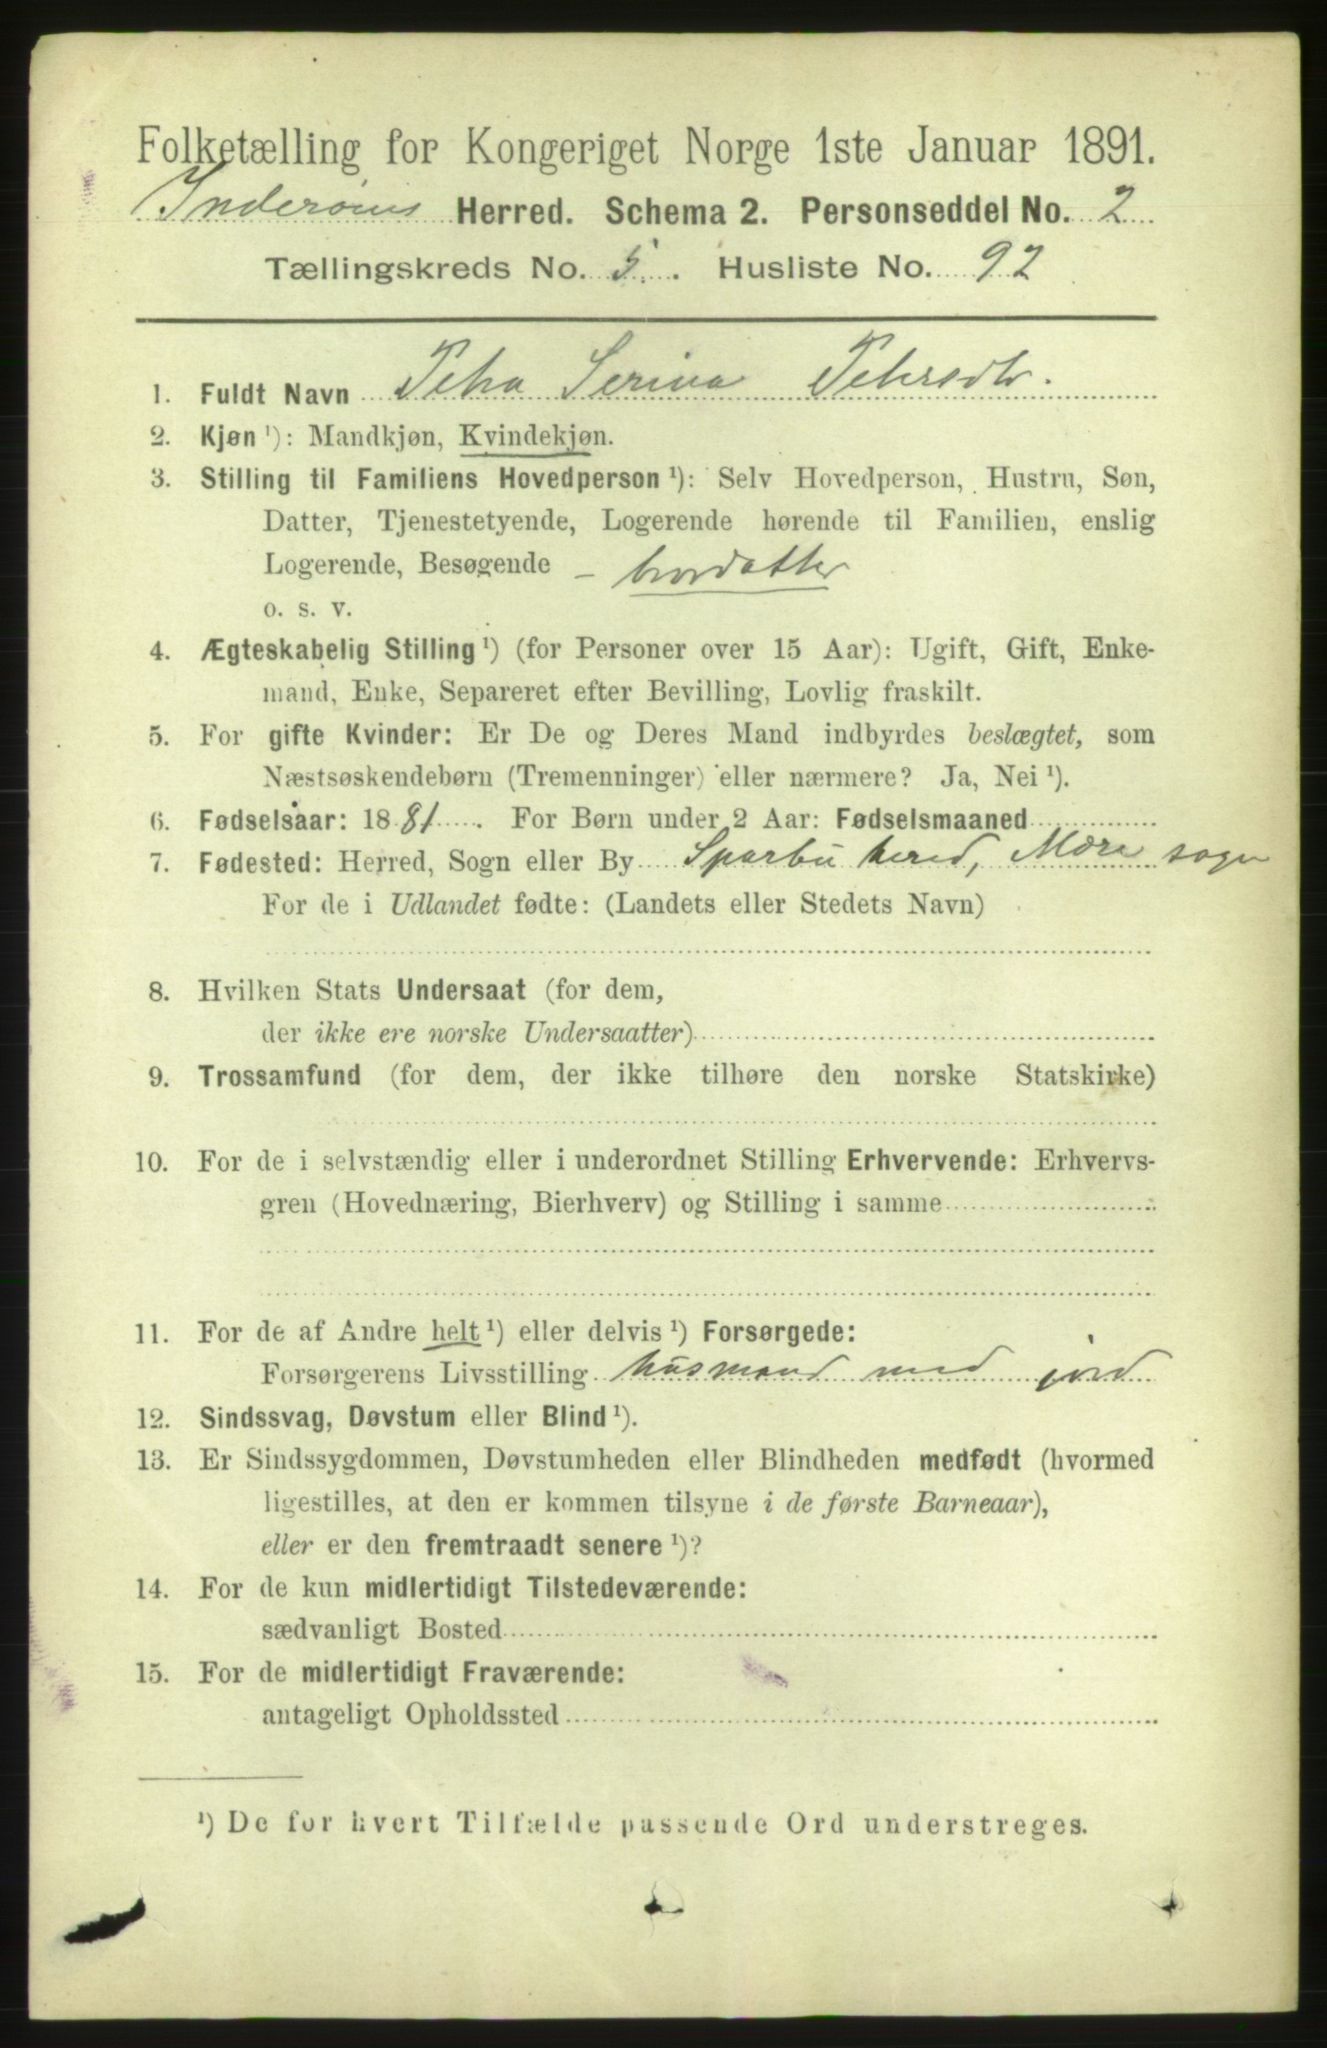 Folketælling for Kongeriget Norge 1ste Januar 1891.
Inderøens Herred. Schema 2. Personseddel No. 2
Tællingskreds No. 5. Husliste No. 92
1. Fuldt Navn Petra Serina Petersdtr.
2. Kjøn ¹): Mandkjøn, Kvindekjøn.
3. Stilling til Familiens Hovedperson ¹): Selv Hovedperson, Hustru, Søn,
Datter, Tjenestetyende, Logerende hørende til Familien, enslig
Logerende, Besøgende – brordatter
o. s. v.
4. Ægteskabelig Stilling ¹) (for Personer over 15 Aar): Ugift, Gift, Enke-
mand, Enke, Separeret efter Bevilling, Lovlig fraskilt.
5. For gifte Kvinder: Er De og Deres Mand indbyrdes beslægtet, som
Næstsøskendebørn (Tremenninger) eller nærmere? Ja, Nei ¹).
6. Fødselsaar: 1881. For Børn under 2 Aar: Fødselsmaaned
7. Fødested: Herred, Sogn eller By Sparbu hered, Mære sogn
For de i Udlandet fødte: (Landets eller Stedets Navn)
8. Hvilken Stats Undersaat (for dem,
der ikke ere norske Undersaatter)
9. Trossamfund (for dem, der ikke tilhøre den norske Statskirke)
10. For de i selvstændig eller i underordnet Stilling Erhvervende: Erhvervs-
gren (Hovednæring, Bierhverv) og Stilling i samme
11. For de af Andre helt ¹) eller delvis ¹) Forsørgede:
Forsørgerens Livsstilling husmand med jord
12. Sindssvag, Døvstum eller Blind ¹).
13. Er Sindssygdommen, Døvstumheden eller Blindheden medfødt (hvormed
ligestilles, at den er kommen tilsyne i de første Barneaar),
eller er den fremtraadt senere ¹)?
14. For de kun midlertidigt Tilstedeværende:
sædvanligt Bosted
15. For de midlertidigt Fraværende:
antageligt Opholdssted
¹) De for hvert Tilfælde passende Ord understreges.